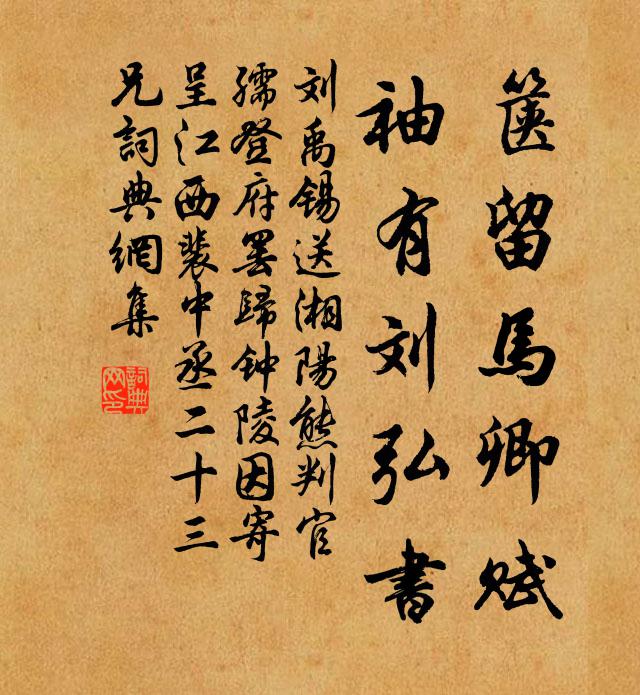 箧留馬卿赋
袖有刘弘書
刘禹锡送湘陽熊判官
孺登府罢歸钟陵因寄
呈江西裴中丞二十三
兄詞典網集
詞典
网印